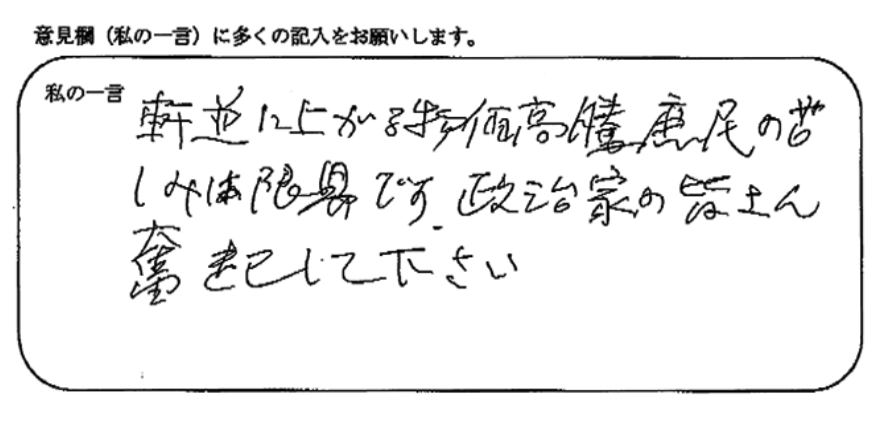 意見欄（私の一言）に多くの記入をお願いします。
私の一言
軒並に上がる物価高騰庶民の苦
しみは限界です。政治家の皆さん
奮起して下さい